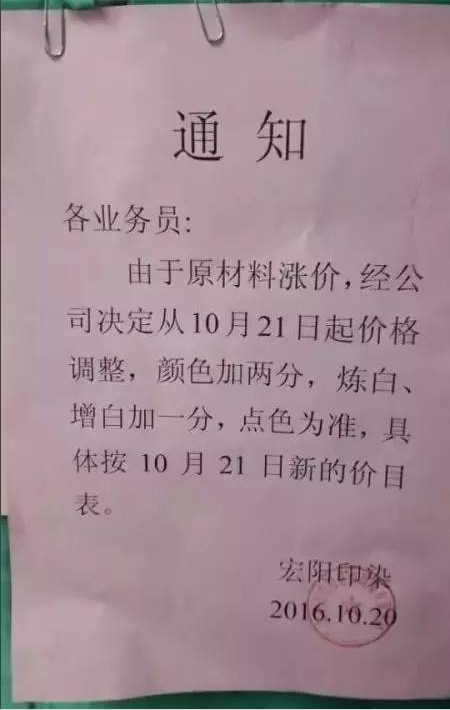 通知
各业务员:
由于原材料涨价,经公
司决定从10月21日起价格
调整，颜色加两分，炼白、
增白加一分，点色为准，具
体按 10 月 21 日新的价目
表。
宏阳印染
2016.10.20